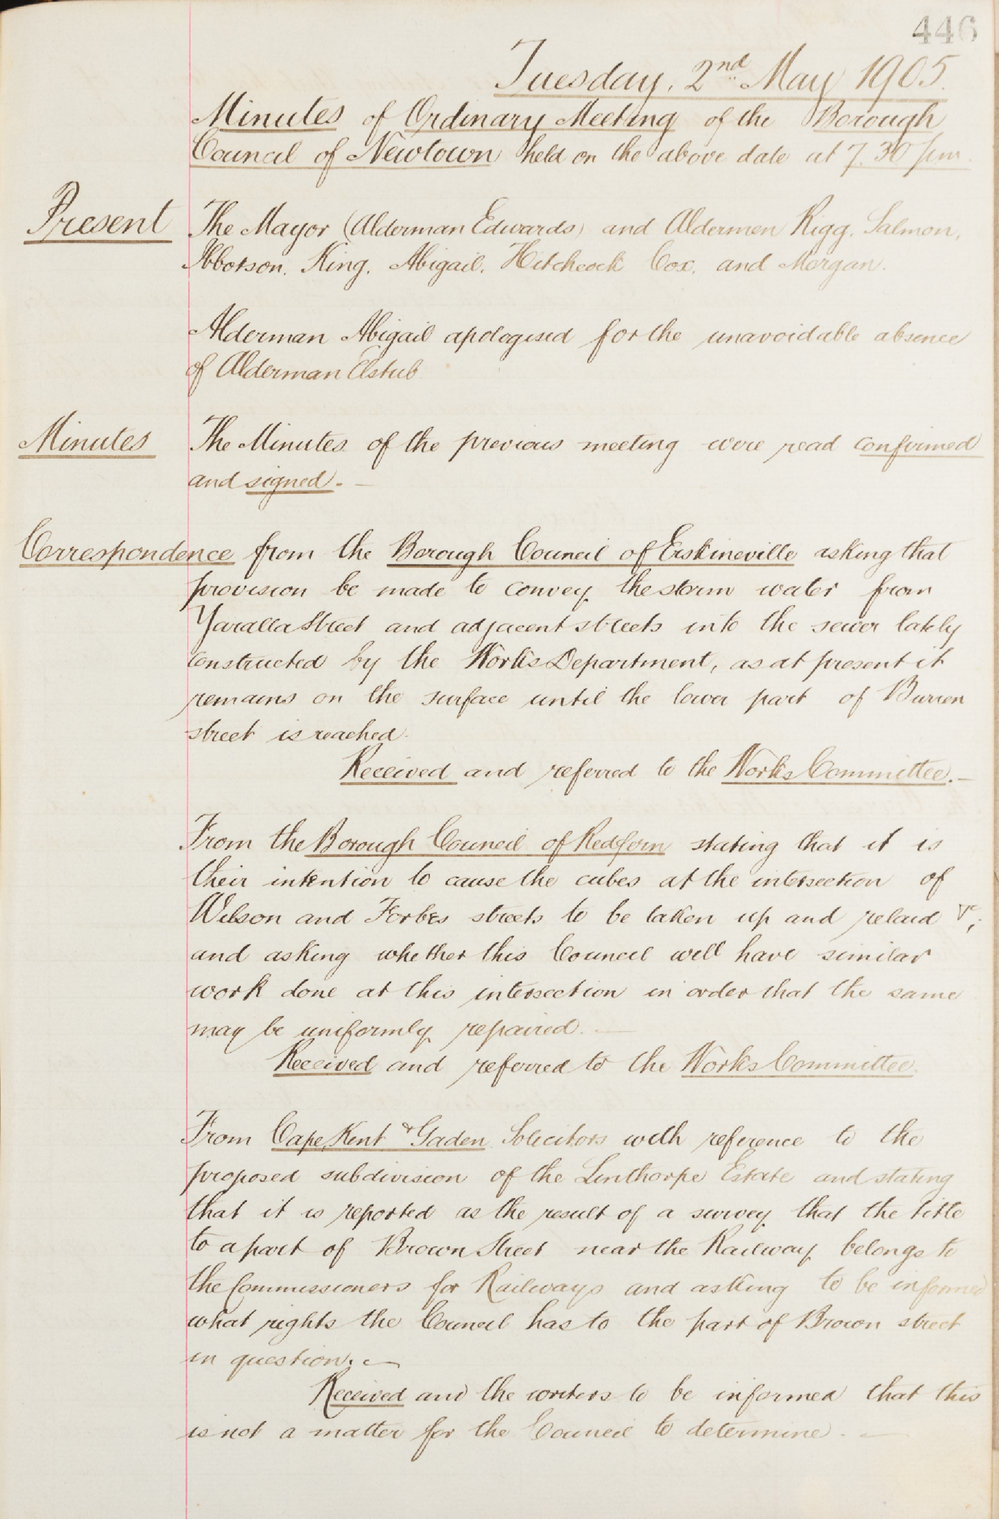 446
Tuesday, 2nd May 1905.
Minutes of Ordinary Meeting of the Borough
Council of Newtown held on the above date at 7.30 pm.
Present The Mayor (Alderman Edwards) and Aldermen Rigg, Salmon,
Ibbotson, King, Abigail, Hitchcock Cox, and Morgan.
Alderman Abigail apologised for the unavoidable absence
of Alderman Estub
Minutes The Minutes of the previous meeting were read confirmed
and signed.
Correspondence from the Borough Council of Erskineville asking that
provision be made to convey the storm water from
Yaralla Street and adjacent streets into the sewer lately
constructed by the Works Department, as at present it
remains on the surface until the lower part of Burren
street is reached.
Received and referred to the Works Committee.
From the Borough Council of Redfern stating that it is
their intention to cause the cubes at the intersection of
Wilson and Forbes streets to be taken up and relaid &c;
and asking whether this Council will have similar
work done at this intersection in order that the same
may be uniformly repaired.
Received and referred to the Works Committee.
From Cape, Kent & Gaden Solicitors with reference to the
proposed subdivision of the Linthorpe Estate and stating
that it is reported as the result of a survey that the title
to a part of Brown Street near the Railway belongs to
the Commissioners for Railways and asking to be informed
what rights the Council has to the part of Brown street
in question.
Received and the writers to be informed that this
is not a matter for the Council to determine.